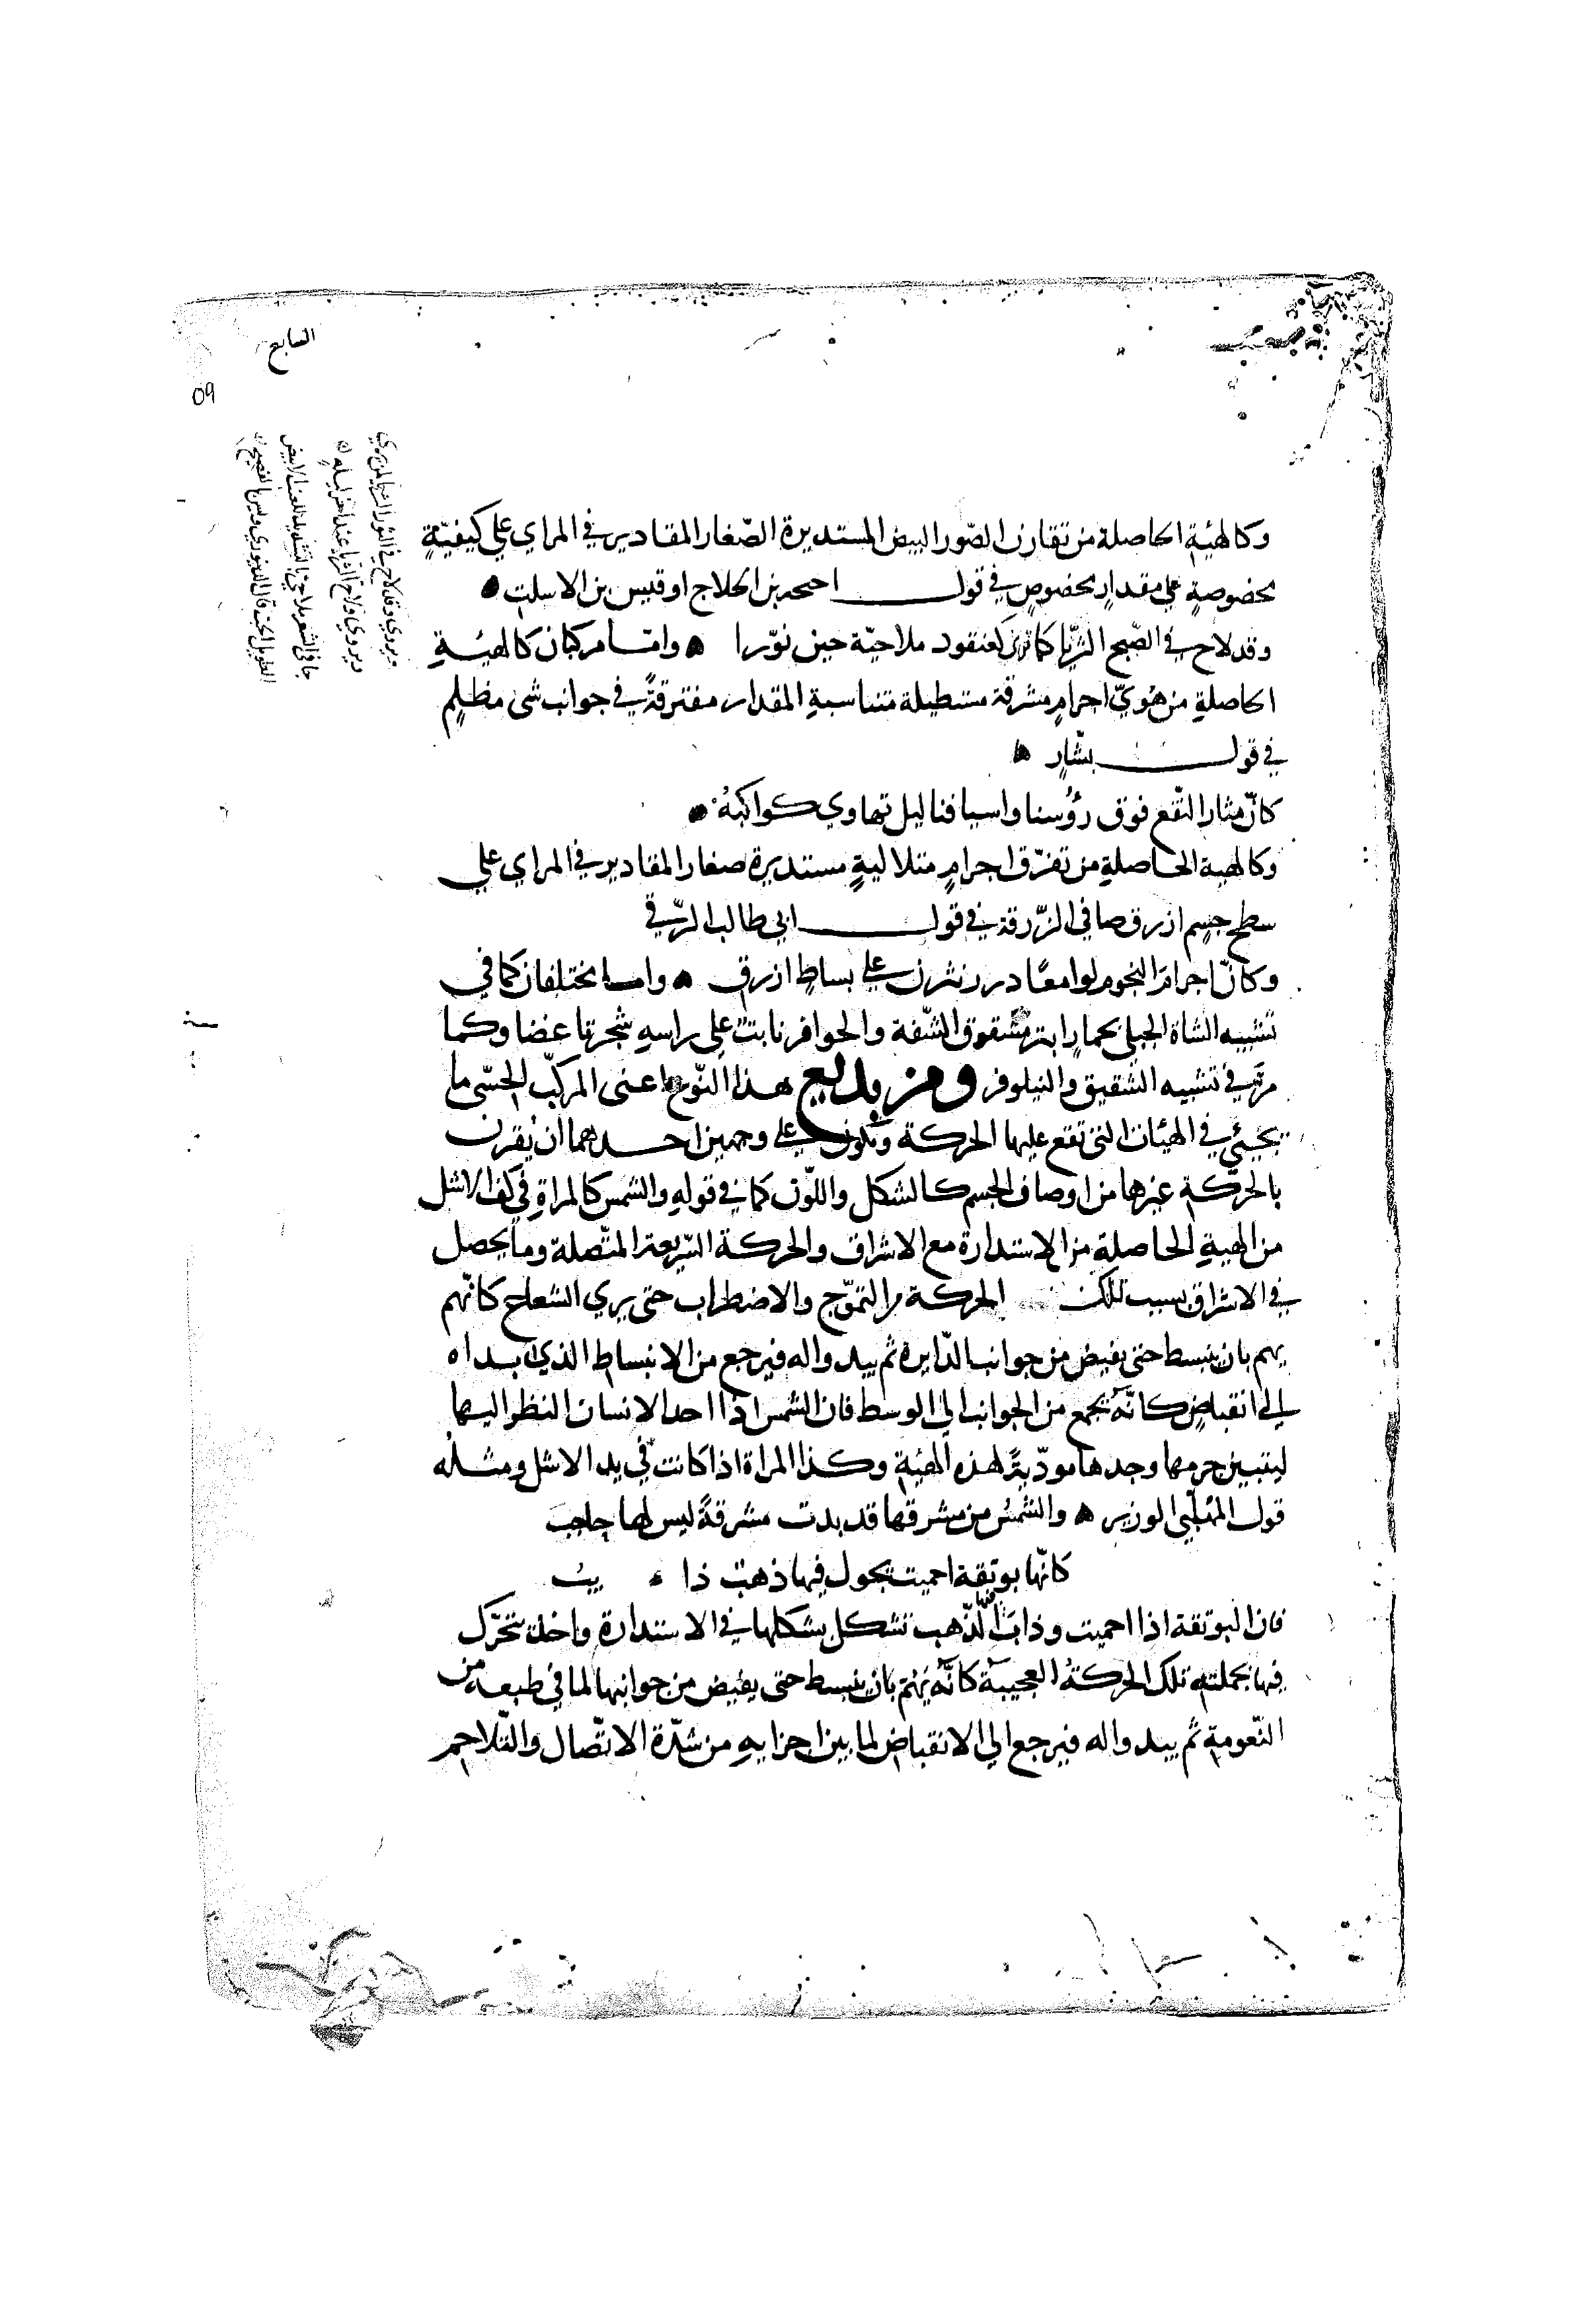 السابع
٥٩
وكالهيئة الحاصلة من تقارن الصّور البيض المستديرة الصّغار المقادير في المراي علي كيفيّةٍ
مخصوصةٍ علي مقدارٍ مخصوصٍ في قول احيحه بن الجلاح او قيس بن الاسلت
وقد لاح في الصّبح الثريّا كما تري كعنقود ملاحيّة حين نوّرا وامّا مركبان كالهيئةِ
الحاصلةِ من هُويّ اجرامٍ مشرقة مستطيلة متناسبةِ المقدار متفرقةً في جوانب شئ مظلمٍ
في قول بشّارٍ
كانّ مثار النّقع فوق رؤُسنا واسيافنا ليل تهاوي كواكبهُ
وكالهيئة الحاصلةِ من تفرّق اجرامٍ متلاليةٍ مستديرة صغار المقادير في المراي علي
سطح جسمٍ ازرق صافي الزّرقة في قول ابي طالب الرّقي
وكانّ اجرام النجوم لوامعًا درر نثرن علي بساطٍ ازرق واما مختلفان كما في
تشبيه الشاة الجبلي بحمارٍ ابتر مشقوق الشّفة والحوافر نابت علي راسهِ شجرتا غضا وكما
مرّ في تشبيه الشقيق والنيلوفر ومن بديع هذا النّوع اعني المركّب الحسّي ما
يجيئ في الهيئات التي تقع عليها الحركة وتكون علي وجهين احدهما ان يقرن
بالحركة غيرها من اوصاف الجسم كالشكل واللّون كما في قولهِ والشمس كالمراةِ في كف الاشل
من الهيةِ الحاصلة من الاستدارة مع الاشراق والحركة السّريعة المتّصلة وما يحصل
في الاشراق بسبب تلك الحركة من التموّج والاضطراب حتي يري الشعاع كانّهم
يهم بان ينبسط حتي يفيض من جوانب الدّايرة ثم يبدو اله فيرجع من الانبساط الذي بداه
الي انقباضٍ كانّهُ يجمع من الجوانب الي الوسط فان الشمس اذا احد الانسان النظر اليها
ليتبين جرمها وجدها مودّيةً لهذه الهئية وكذا المراة اذا كانت في يد الاشل ومثلُه
قول المُهلّبي الوزير والشمسُ من مشرقها قد بدت مشرقةً ليس لها حاجب
كانّها بوتقة احميت يجول فيها ذهبٌ ذا يبُ
فان البوتقة اذا احميت وذاب فيها الذّهب تشكل بشكلها في الاستدارة واخذ يتحرّك
فيها بجملته تلك الحركةُ العجيبة كانّهُ يَهُمّ بان ينبسط حتي يفيض من جوانبها لما في طبعهِ من
النّعومةِ ثم يبدو اله فيرجع الي الانقباض لما بين اجزايهِ من شدّة الاتّصال والتّلاحم